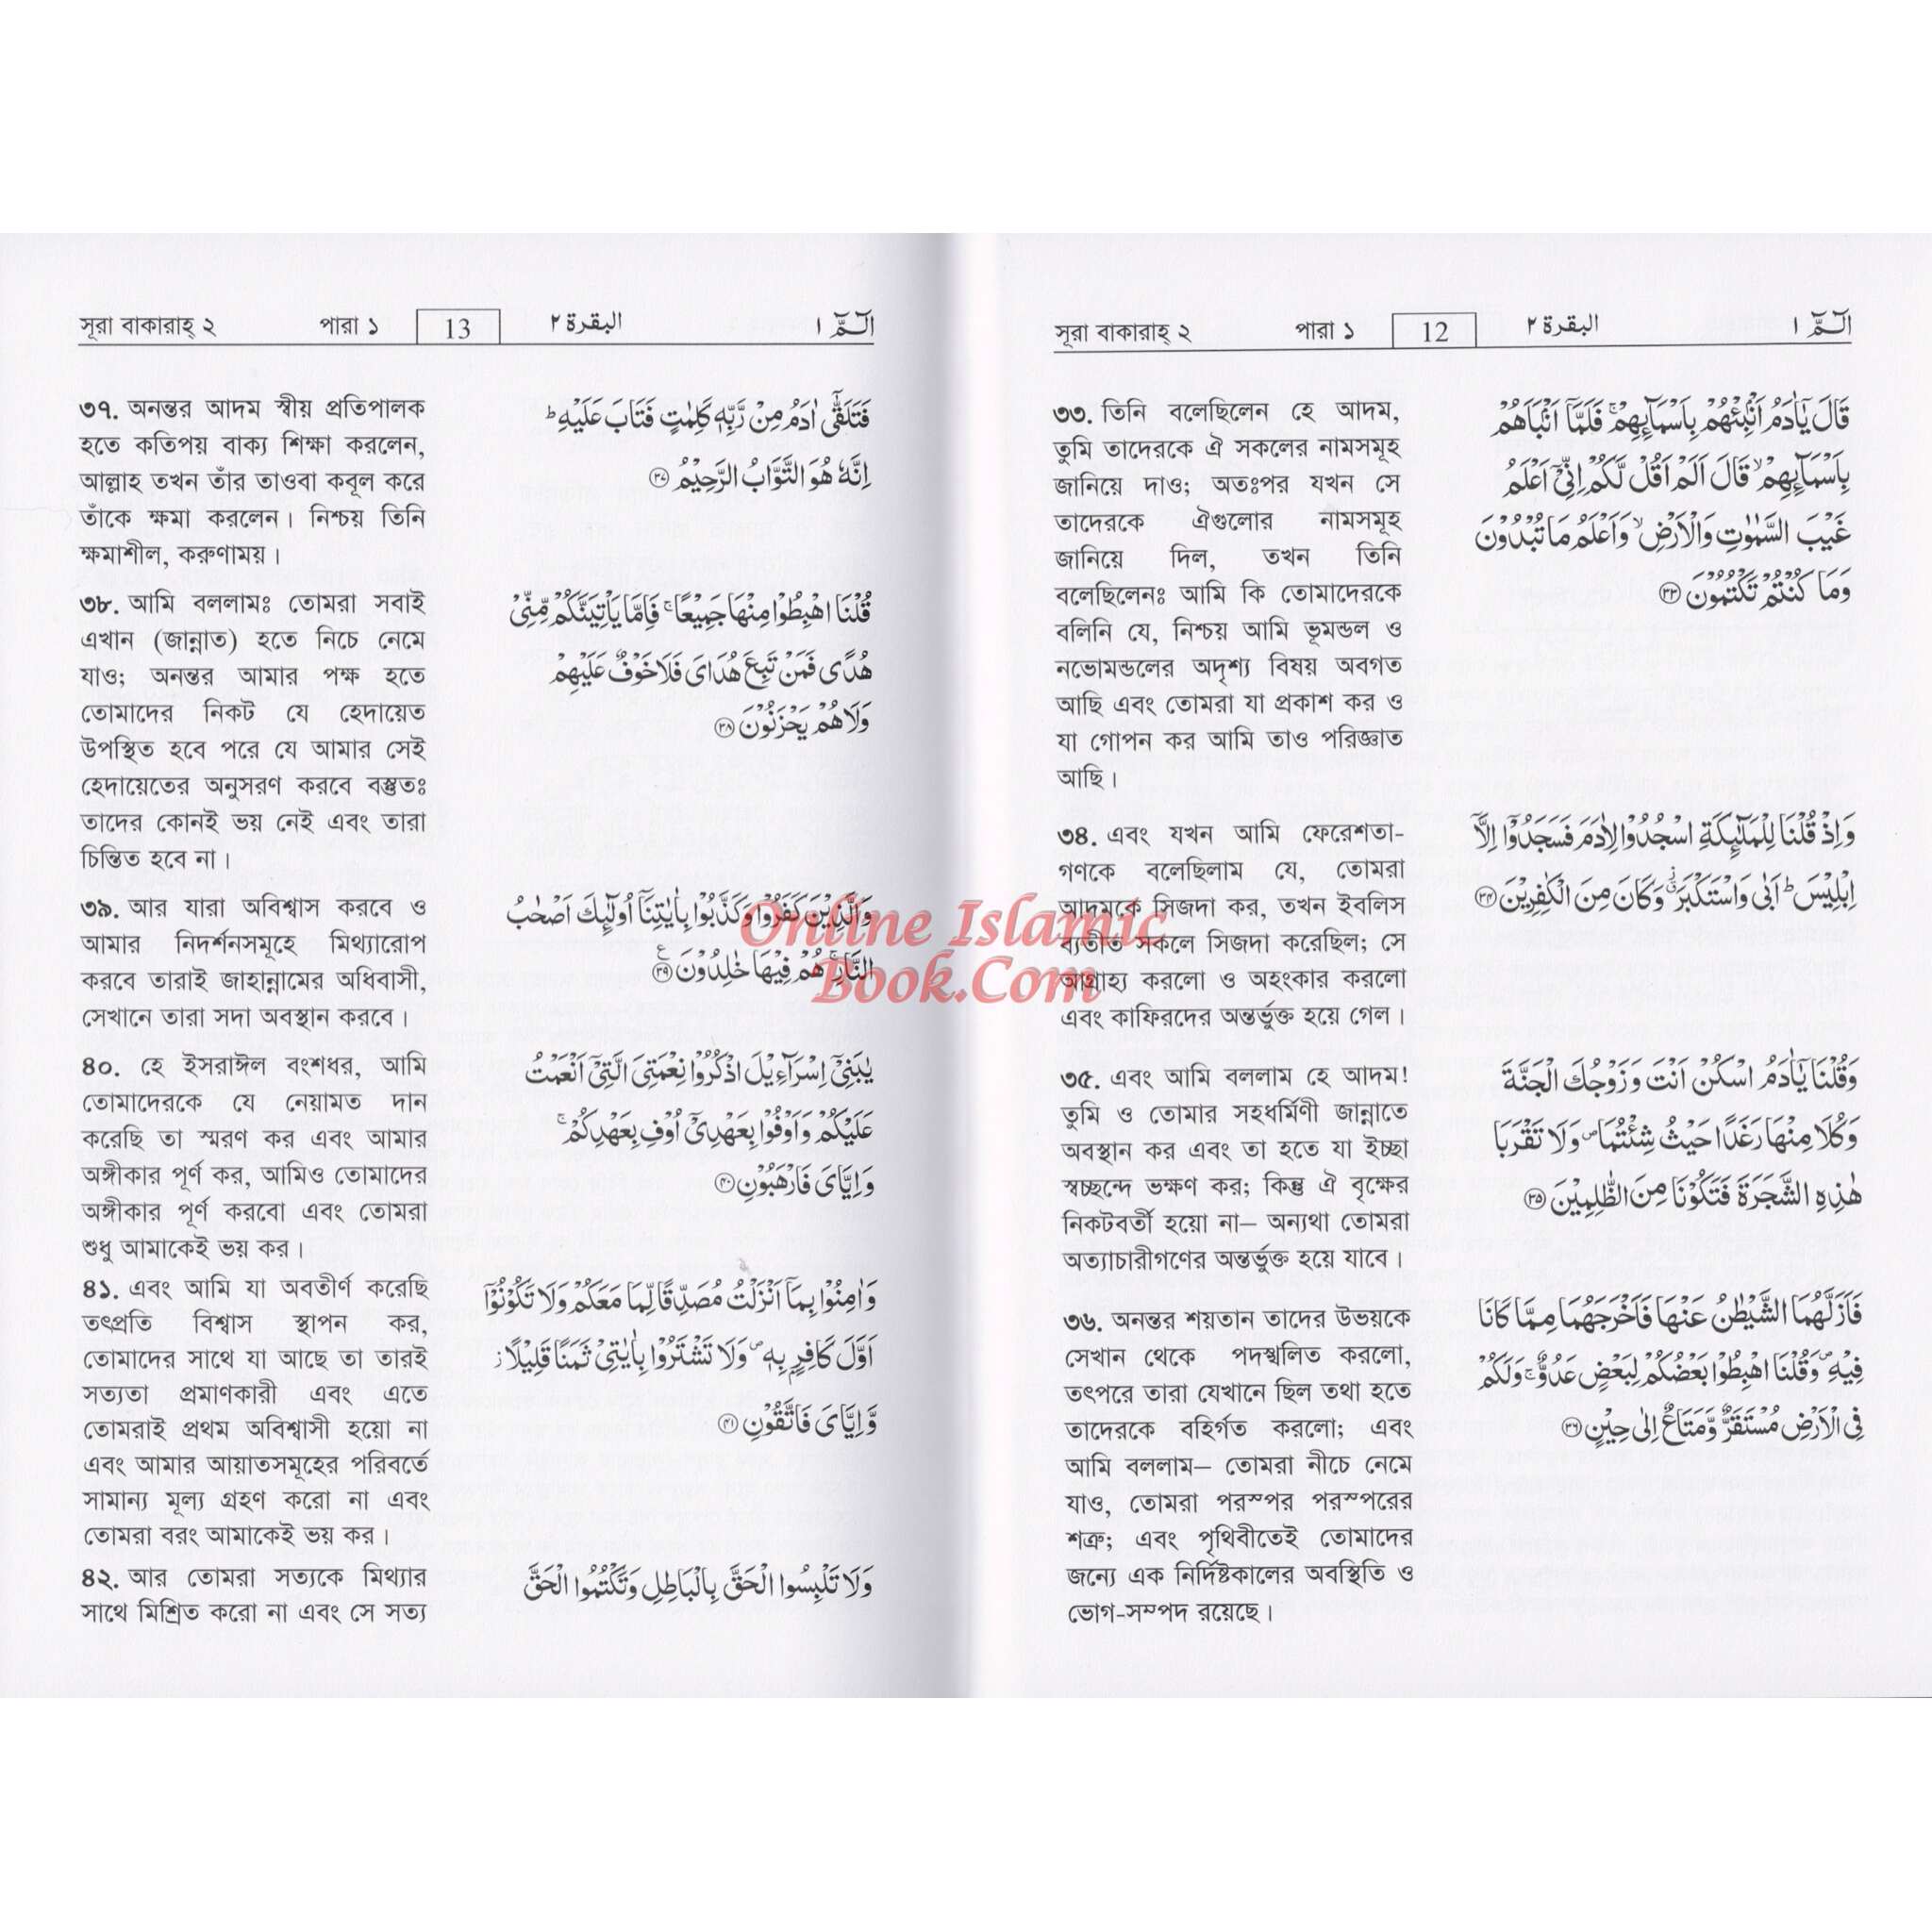 সূরা বাকারাহ্ ২ পারা ১ 12 البقرة ٢ الٓمّٓ ١
৩৩. তিনি বলেছিলেন হে আদম,
তুমি তাদেরকে ঐ সকলের নামসমূহ
জানিয়ে দাও; অতঃপর যখন সে
তাদেরকে ঐগুলোর নামসমূহ
জানিয়ে দিল, তখন তিনি
বলেছিলেনঃ আমি কি তোমাদেরকে
বলিনি যে, নিশ্চয় আমি ভূমন্ডল ও
নভোমন্ডলের অদৃশ্য বিষয় অবগত
আছি এবং তোমরা যা প্রকাশ কর ও
যা গোপন কর আমি তাও পরিজ্ঞাত
আছি।
قَالَ يٰٓاٰدَمُ اَنْۢبِئْهُمْ بِاَسْمَآئِهِمْ ۚ فَلَمَّآ اَنْۢبَاَهُمْ
بِاَسْمَآئِهِمْ ۙ قَالَ اَلَمْ اَقُلْ لَّكُمْ اِنِّيْٓ اَعْلَمُ
غَيْبَ السَّمٰوٰتِ وَالْاَرْضِ ۙ وَاَعْلَمُ مَا تُبْدُوْنَ
وَمَا كُنْتُمْ تَكْتُمُوْنَ ﴿٣٣﴾
৩৪. এবং যখন আমি ফেরেশতা-
গণকে বলেছিলাম যে, তোমরা
আদমকে সিজদা কর, তখন ইবলিস
ব্যতীত সকলে সিজদা করেছিল; সে
অগ্রাহ্য করলো ও অহংকার করলো
এবং কাফিরদের অন্তর্ভুক্ত হয়ে গেল।
وَاِذْ قُلْنَا لِلْمَلٰٓئِكَةِ اسْجُدُوْا لِاٰدَمَ فَسَجَدُوْٓا اِلَّآ
اِبْلِيْسَ ؕ اَبٰى وَاسْتَكْبَرَ ۫ وَكَانَ مِنَ الْكٰفِرِيْنَ ﴿٣٤﴾
৩৫. এবং আমি বললাম হে আদম!
তুমি ও তোমার সহধর্মিণী জান্নাতে
অবস্থান কর এবং তা হতে যা ইচ্ছা
স্বচ্ছন্দে ভক্ষণ কর; কিন্তু ঐ বৃক্ষের
নিকটবর্তী হয়ো না– অন্যথা তোমরা
অত্যাচারীগণের অন্তর্ভুক্ত হয়ে যাবে।
وَقُلْنَا يٰٓاٰدَمُ اسْكُنْ اَنْتَ وَزَوْجُكَ الْجَنَّةَ
وَكُلَا مِنْهَا رَغَدًا حَيْثُ شِئْتُمَا ۪ وَلَا تَقْرَبَا
هٰذِهِ الشَّجَرَةَ فَتَكُوْنَا مِنَ الظّٰلِمِيْنَ ﴿٣٥﴾
৩৬. অনন্তর শয়তান তাদের উভয়কে
সেখান থেকে পদস্খলিত করলো,
তৎপরে তারা যেখানে ছিল তথা হতে
তাদেরকে বহির্গত করলো; এবং
আমি বললাম– তোমরা নীচে নেমে
যাও, তোমরা পরস্পর পরস্পরের
শত্রু; এবং পৃথিবীতেই তোমাদের
জন্যে এক নির্দিষ্টকালের অবস্থিতি ও
ভোগ-সম্পদ রয়েছে।
فَاَزَلَّهُمَا الشَّيْطٰنُ عَنْهَا فَاَخْرَجَهُمَا مِمَّا كَانَا
فِيْهِ ۪ وَقُلْنَا اهْبِطُوْا بَعْضُكُمْ لِبَعْضٍ عَدُوٌّ ۚ وَلَكُمْ
فِى الْاَرْضِ مُسْتَقَرٌّ وَّمَتَاعٌ اِلٰى حِيْنٍ ﴿٣٦﴾
সূরা বাকারাহ্ ২ পারা ১ 13 البقرة ٢ الٓمّٓ ١
৩৭. অনন্তর আদম স্বীয় প্রতিপালক
হতে কতিপয় বাক্য শিক্ষা করলেন,
আল্লাহ তখন তাঁর তাওবা কবূল করে
তাঁকে ক্ষমা করলেন। নিশ্চয় তিনি
ক্ষমাশীল, করুণাময়।
فَتَلَقّٰٓى اٰدَمُ مِنْ رَّبِّهٖ كَلِمٰتٍ فَتَابَ عَلَيْهِ ؕ
اِنَّهٗ هُوَ التَّوَّابُ الرَّحِيْمُ ﴿٣٧﴾
৩৮. আমি বললামঃ তোমরা সবাই
এখান (জান্নাত) হতে নিচে নেমে
যাও; অনন্তর আমার পক্ষ হতে
তোমাদের নিকট যে হেদায়েত
উপস্থিত হবে পরে যে আমার সেই
হেদায়েতের অনুসরণ করবে বস্তুতঃ
তাদের কোনই ভয় নেই এবং তারা
চিন্তিত হবে না।
قُلْنَا اهْبِطُوْا مِنْهَا جَمِيْعًا ۚ فَاِمَّا يَاْتِيَنَّكُمْ مِّنِّيْ
هُدًى فَمَنْ تَبِعَ هُدَاىَ فَلَا خَوْفٌ عَلَيْهِمْ
وَلَا هُمْ يَحْزَنُوْنَ ﴿٣٨﴾
৩৯. আর যারা অবিশ্বাস করবে ও
আমার নিদর্শনসমূহে মিথ্যারোপ
করবে তারাই জাহান্নামের অধিবাসী,
সেখানে তারা সদা অবস্থান করবে।
وَالَّذِيْنَ كَفَرُوْا وَكَذَّبُوْا بِاٰيٰتِنَآ اُولٰٓئِكَ اَصْحٰبُ
النَّارِ ۚ هُمْ فِيْهَا خٰلِدُوْنَ ﴿٣٩﴾ ع
৪০. হে ইসরাঈল বংশধর, আমি
তোমাদেরকে যে নেয়ামত দান
করেছি তা স্মরণ কর এবং আমার
অঙ্গীকার পূর্ণ কর, আমিও তোমাদের
অঙ্গীকার পূর্ণ করবো এবং তোমরা
শুধু আমাকেই ভয় কর।
يٰبَنِيْٓ اِسْرَآءِيْلَ اذْكُرُوْا نِعْمَتِيَ الَّتِيْٓ اَنْعَمْتُ
عَلَيْكُمْ وَاَوْفُوْا بِعَهْدِيْٓ اُوْفِ بِعَهْدِكُمْ ۚ
وَاِيَّايَ فَارْهَبُوْنِ ﴿٤٠﴾
৪১. এবং আমি যা অবতীর্ণ করেছি
তৎপ্রতি বিশ্বাস স্থাপন কর,
তোমাদের সাথে যা আছে তা তারই
সত্যতা প্রমাণকারী এবং এতে
তোমরাই প্রথম অবিশ্বাসী হয়ো না
এবং আমার আয়াতসমূহের পরিবর্তে
সামান্য মূল্য গ্রহণ করো না এবং
তোমরা বরং আমাকেই ভয় কর।
وَاٰمِنُوْا بِمَآ اَنْزَلْتُ مُصَدِّقًا لِّمَا مَعَكُمْ وَلَا تَكُوْنُوْٓا
اَوَّلَ كَافِرٍۭ بِهٖ ۪ وَلَا تَشْتَرُوْا بِاٰيٰتِيْ ثَمَنًا قَلِيْلًا ؗ
وَّاِيَّايَ فَاتَّقُوْنِ ﴿٤١﴾
৪২. আর তোমরা সত্যকে মিথ্যার
সাথে মিশ্রিত করো না এবং সে সত্য
وَلَا تَلْبِسُوا الْحَقَّ بِالْبَاطِلِ وَتَكْتُمُوا الْحَقَّ
Online Islamic
Book.Com